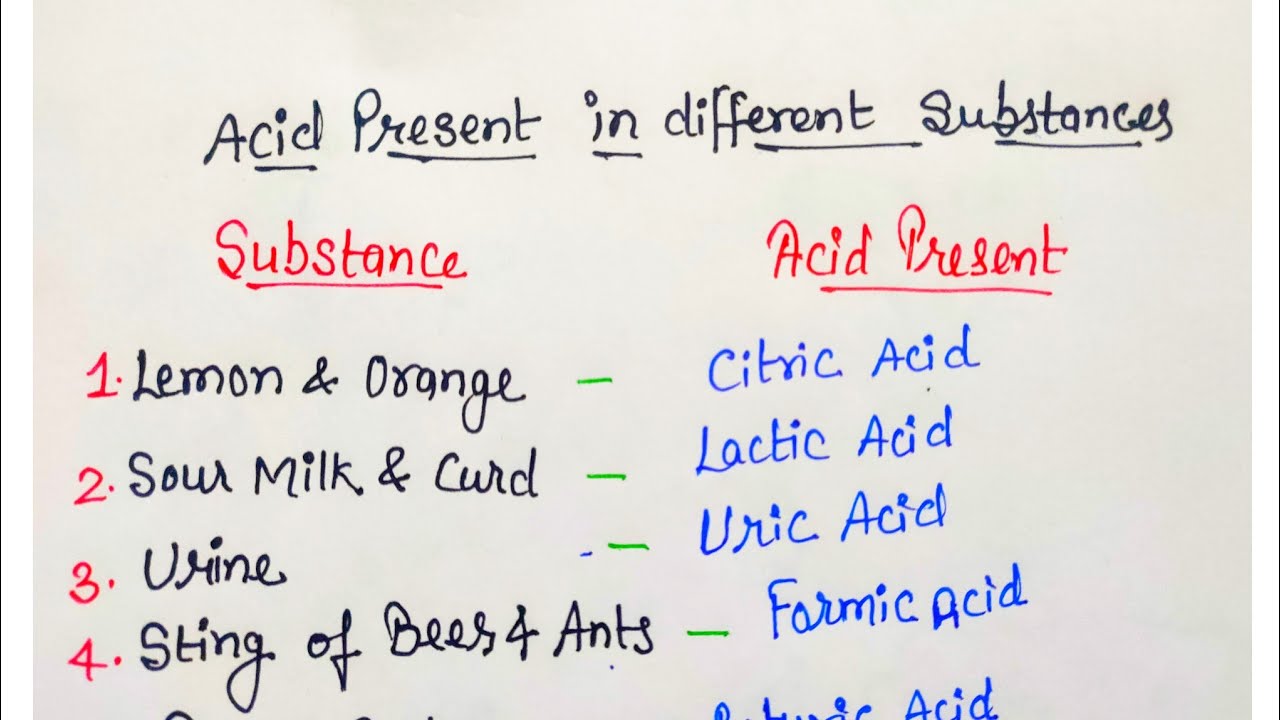 Acid Present in different Substances
Substance Acid Present
1. Lemon & Orange – Citric Acid
2. Sour Milk & Curd – Lactic Acid
3. Urine – Uric Acid
4. Sting of Bees & Ants – Formic Acid
Acid